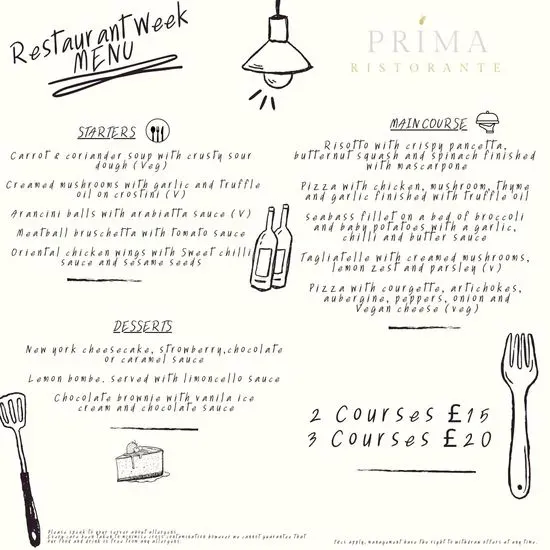 Restaurant Week
MENU
PRIMA
RISTORANTE
STARTERS
Carrot & coriander soup with crusty sour
dough (Veg)
Creamed mushrooms with garlic and truffle
oil on crostini (V)
Arancini balls with arabiatta sauce (V)
Meatball bruschetta with tomato sauce
Oriental chicken wings with Sweet chilli
sauce and sesame seeds
MAIN COURSE
Risotto with crispy pancetta,
butternut squash and spinach finished
with mascarpone
Pizza with chicken, mushroom, thyme
and garlic finished with truffle oil
seabass fillet on a bed of broccoli
and baby potatoes with a garlic,
chilli and butter sauce
Tagliatelle with creamed mushrooms,
lemon zest and parsley (v)
Pizza with courgette, artichokes,
aubergine, peppers, onion and
Vegan cheese (veg)
DESSERTS
New york cheesecake, strowberry,chocolate
or caramel sauce
Lemon bombe, served with limoncello sauce
Chocolate brownie with vanila ice
cream and chocolate sauce
2 Courses £15
3 Courses £20
Please speak to your server about allergens.
Every care been taken to minimise cross contamination however we cannot guarantee that
our food and drink is free from any allergens
Tecs apply, management have the right to withdraw offers at any time.